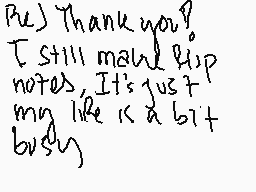 Re) Thank you!
I still make flip
notes, It's just
my life is a bit
busy